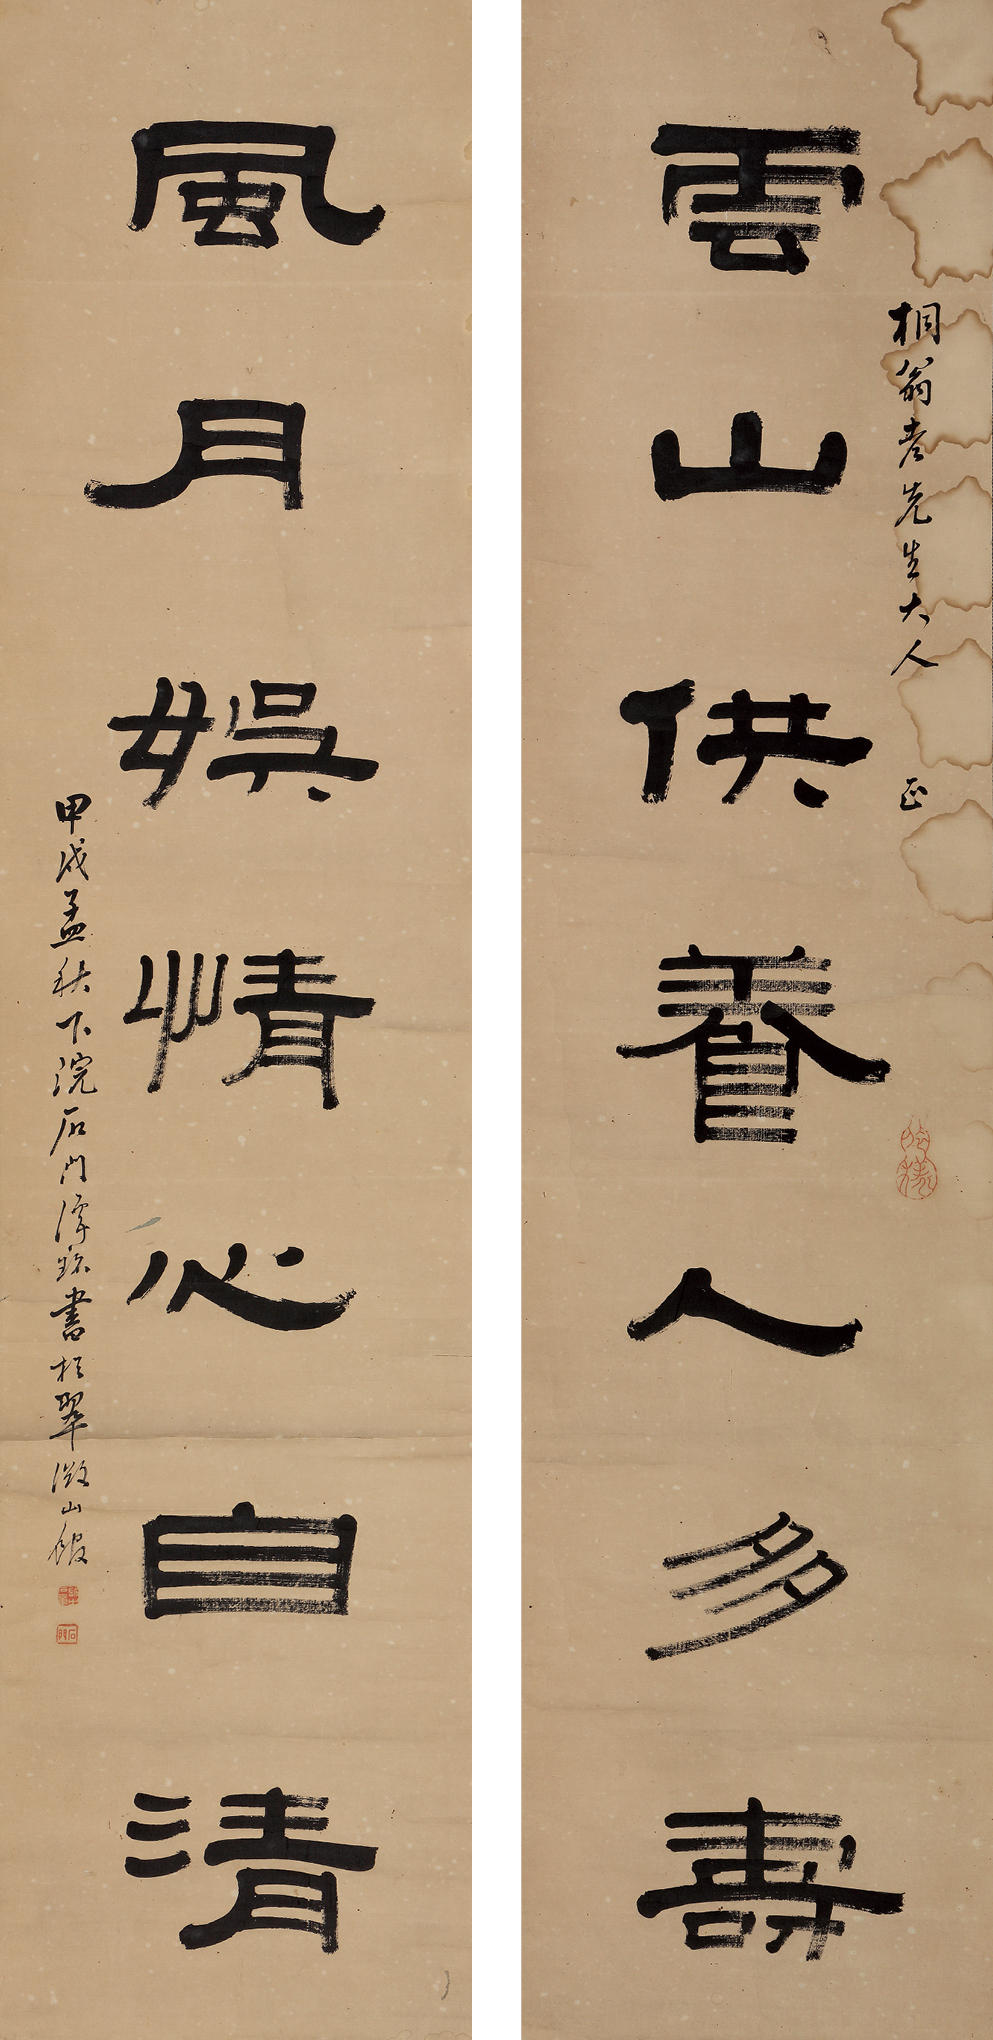 桐翁老先生大人 正
雲山供養人多壽
風月娛情心自清
甲戌孟秋下浣石門潭書於翠微山館
石門